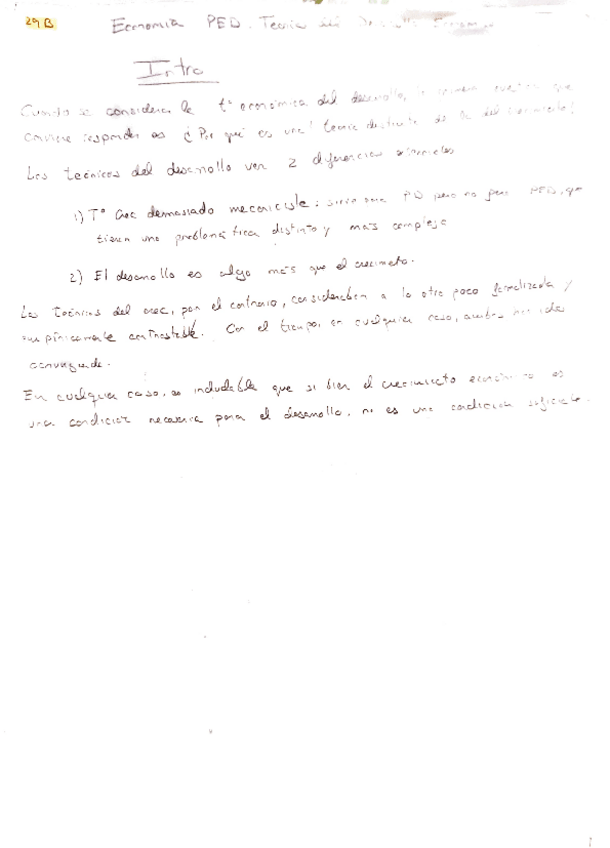 29B
Economía PED. Teoría del Desarrollo Económico
Intro
Cuando se considera la tª económica del desarrollo, la primera cuestión que
conviene responder es ¿Por qué es una teoría distinta de la del crecimiento?
Los teóricos del desarrollo ven 2 diferencias
1) Tª Crec demasiado mecanicista: sirve para PD pero no para PED, que
tienen una problemática distinta y más compleja
2) El desarrollo es algo más que el crecimeto.
Los teóricos del crec, por el contrario, consideraban a la otra poco formalizada y
empíricamente contrastable. Con el tiempo, en cualquier caso, ambas han ido
convergiendo.
En cualquier caso, es indudable que si bien el crecimiento económico es
una condición necesaria para el desarrollo, no es una condición suficiente.
1